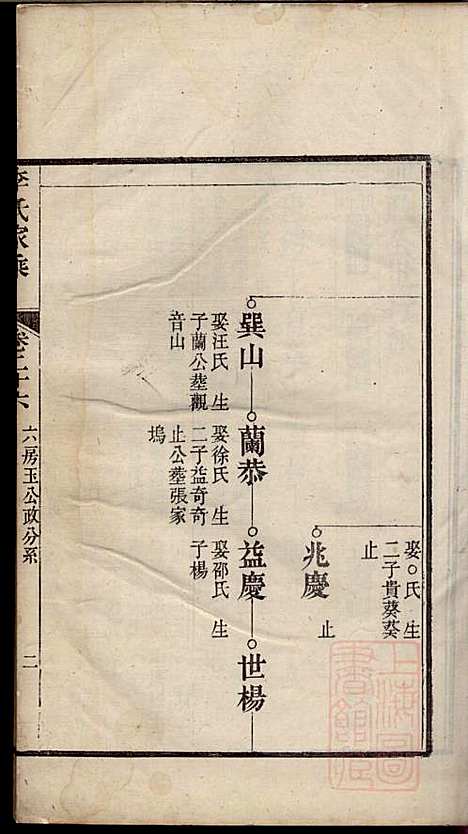 娶○氏 生
二子貴葵葵
止
兆慶 止
巽山
娶汪氏 生
子蘭公塟觀
音山
蘭恭
娶徐氏 生
二子益奇奇
止公塟張家
塢
益慶
娶邵氏 生
子楊
世楊
李氏家乘
卷之二十六
六房玉公政分系
二
上海圖
書館藏